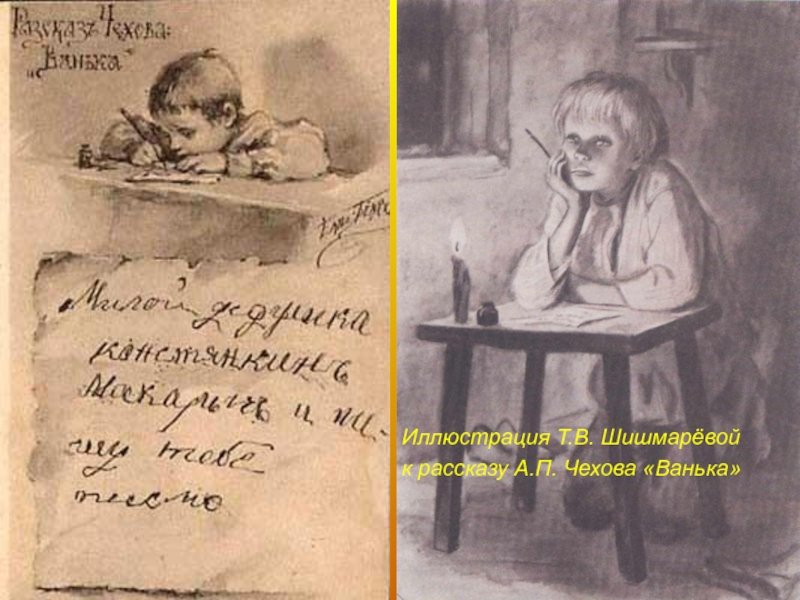 Разсказъ Чехова:
„Ванька"
Милой дедушка
констянкинъ
Макарычъ и пи-
шу тебе
писмо
Иллюстрация Т.В. Шишмарёвой
к рассказу А.П. Чехова «Ванька»